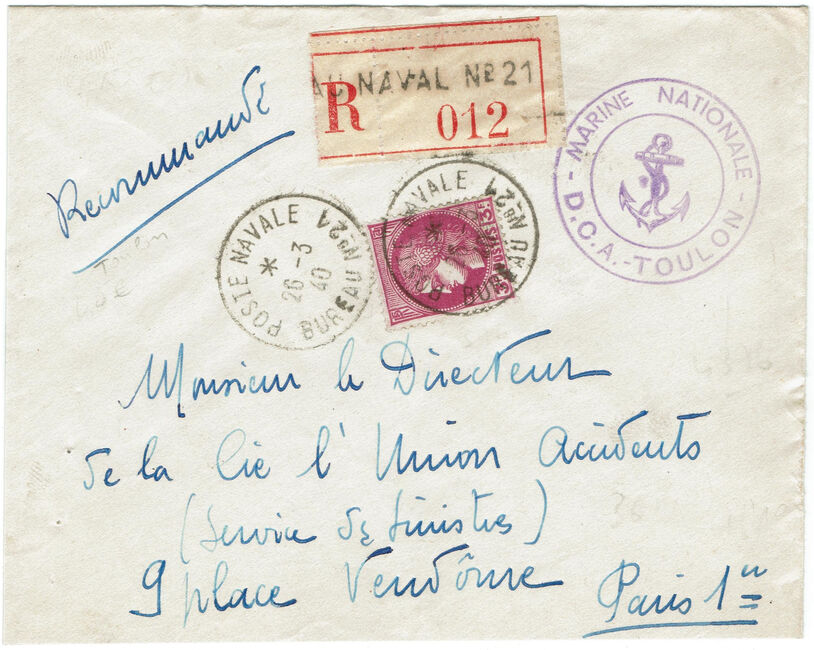 AU NAVAL No 21
R 012
Recommandé
MARINE NATIONALE
D.C.A. - TOULON
POSTE NAVALE
BUREAU No 21
*
26 - 3
40
NAVALE
BUREAU No 21
*
3F
POSTES
Toulon
Monsieur le Directeur
de la Cie l'Union Accidents
(Service des Sinistres)
9 place Vendôme
Paris 1er